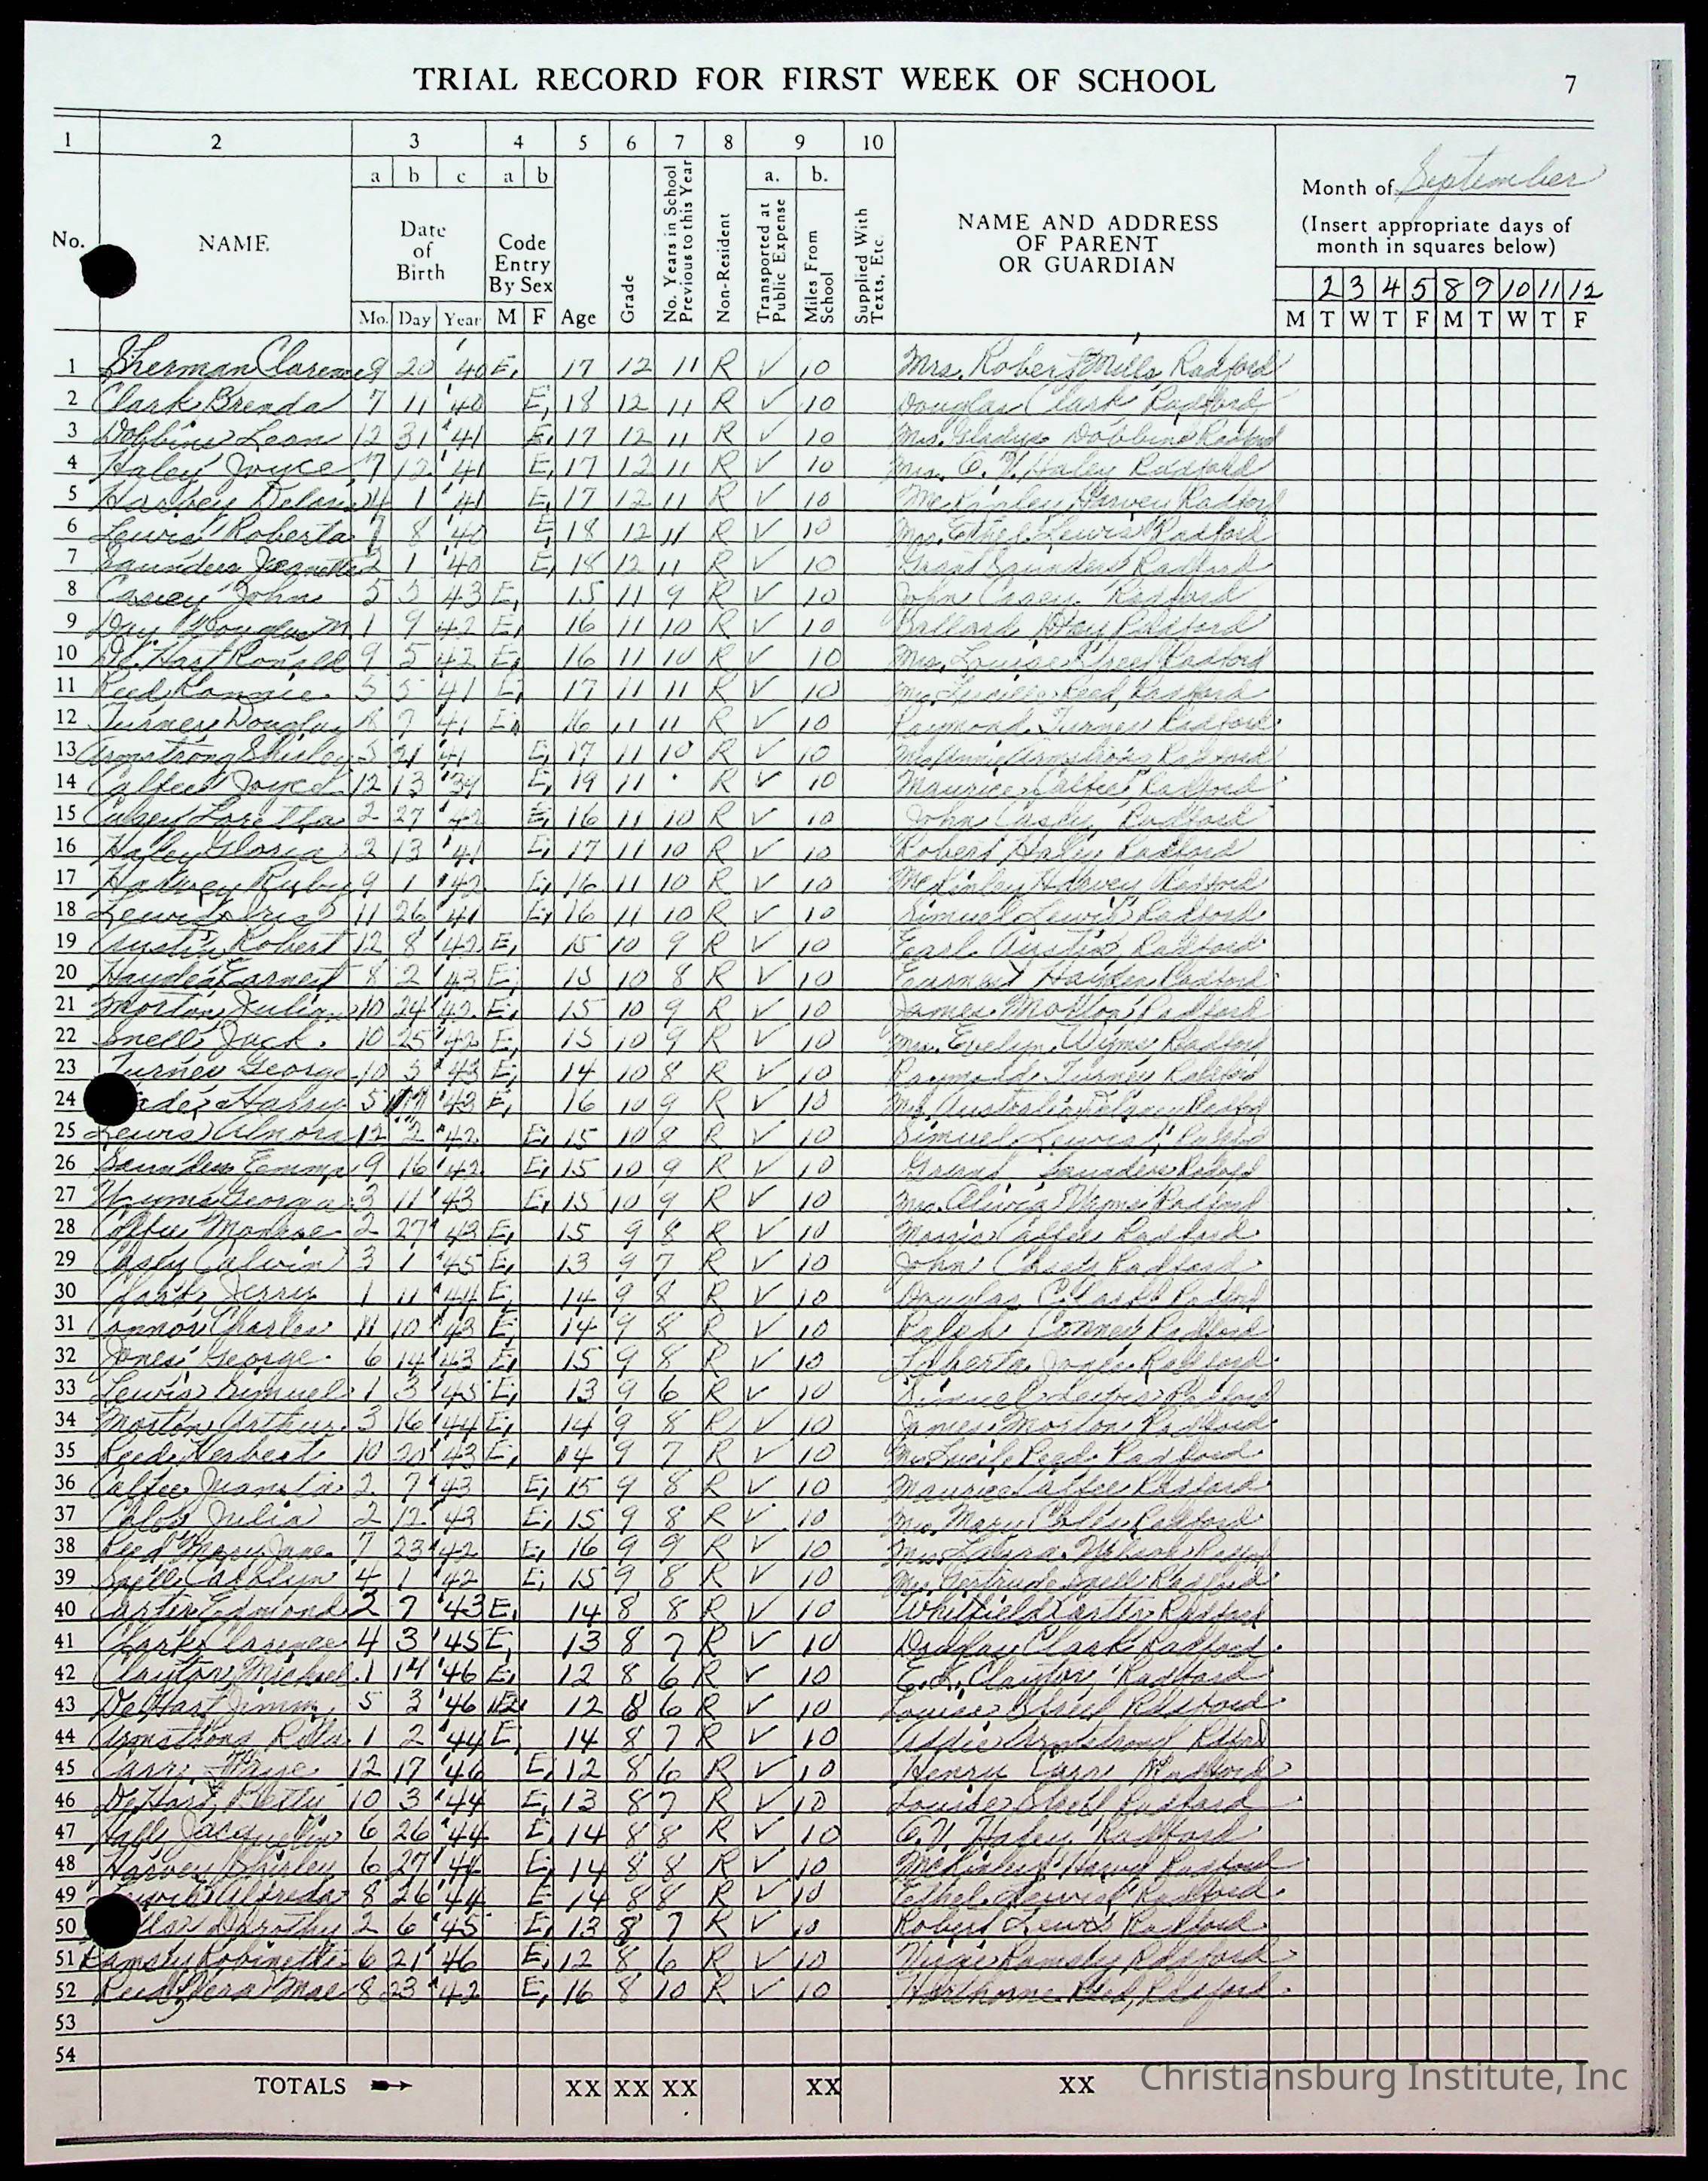 TRIAL RECORD FOR FIRST WEEK OF SCHOOL 7
1 2 3 4 5 6 7 8 9 10
a b c a b a. b.
No. NAME Date of Birth Code Entry By Sex Age Grade No. Years in School Previous to this Year Non-Resident Transported at Public Expense Miles From School Supplied With Texts, Etc. NAME AND ADDRESS OF PARENT OR GUARDIAN
Month of September
(Insert appropriate days of month in squares below)
2 3 4 5 8 9 10 11 12
Mo. Day Year M F M T W T F M T W T F
1 Sherman Clarence 9 20 '40 E, 17 12 11 R √ 10 Mrs. Robert Mills Radford
2 Clark Brenda 7 11 '40 E, 18 12 11 R √ 10 Douglas Clark Radford
3 Dobbins Leon 12 31 '41 E, 17 12 11 R √ 10 Mrs. Gladys Dobbins Radford
4 Haley Joyce 7 12 '41 E, 17 12 11 R √ 10 Mrs. C. V. Haley Radford
5 Harvey 4 1 '41 E, 17 12 11 R √ 10 McKinley Harvey Radford
6 Lewis Roberta 7 8 '40 E, 18 12 11 R √ 10 Mrs. Ethel Lewis Radford
7 Saunders Jeanette 2 1 '40 E, 18 12 11 R √ 10 Grant Saunders Radford
8 Casey John 5 5 '43 E, 15 11 9 R √ 10 John Casey Radford
9 Day Douglas M. 1 9 '42 E, 16 11 10 R √ 10 Ballard Day Radford
10 De Hart Ronald 9 5 '42 E, 16 11 10 R √ 10 Mrs. Louise Radford
11 Reed Ronnie 5 5 '41 E, 17 11 11 R √ 10 Mrs. Lucille Reed, Radford
12 Turner Douglas 8 7 '41 E, 16 11 11 R √ 10 Raymond Turner Radford
13 Armstrong Shirley 5 21 '41 E, 17 11 10 R √ 10 Armstrong Radford
14 Calfee Joyce 12 13 '39 E, 19 11 R √ 10 Maurice Calfee Radford
15 Loretta 2 27 '42 E, 16 11 10 R √ 10 John Casey Radford
16 Haley Gloria 2 13 '41 E, 17 11 10 R √ 10 Robert Haley Radford
17 Harvey Ruby 9 1 '42 E, 16 11 10 R √ 10 McKinley Harvey Radford
18 Lewis Iris 11 26 '41 E, 16 11 10 R √ 10 Simuel Lewis Radford
19 Austin Robert 12 8 '42 E, 15 10 9 R √ 10 Earl Austin Radford
20 Hayden Earnest 8 2 '43 E, 15 10 8 R √ 10 Earnest Hayden Radford
21 Morton Julian 10 24 '42 E, 15 10 9 R √ 10 James Morton Radford
22 Snell Jack 10 25 '42 E, 15 10 9 R √ 10 Mrs. Evelyn Wyms Radford
23 Turner George 10 5 '43 E, 14 10 8 R √ 10 Raymond Turner Radford
24 Harry 5 '42 E, 16 10 9 R √ 10 Mrs. Radford
25 Lewis 12 2 '42 E, 15 10 8 R √ 10 Simuel Lewis Radford
26 Saunders Emma 9 16 '42 E, 15 10 9 R √ 10 Grant Saunders Radford
27 Wyms Georgia 3 11 '43 E, 15 10 9 R √ 10 Mrs. Olivia Wyms Radford
28 Calfee Monroe 2 27 '43 E, 15 9 8 R √ 10 Calfee Radford
29 Casey Calvin 3 1 '45 E, 13 9 7 R √ 10 John Casey Radford
30 Clark Jerry 1 11 '44 E, 14 9 8 R √ 10 Douglas Clark Radford
31 Connor Charles 11 10 '43 E, 14 9 8 R √ 10 Ralph Conner Radford
32 Jones George 6 14 '43 E, 15 9 8 R √ 10 Jones Radford
33 Lewis Simuel 1 3 '45 E, 13 9 6 R √ 10 Simuel Lewis Radford
34 Morton Arthur 3 16 '44 E, 14 9 8 R √ 10 James Morton Radford
35 Reed Herbert 10 20 '43 E, 14 9 7 R √ 10 Mrs. Lucile Reed Radford
36 Calfee Juanita 2 7 '43 E, 15 9 8 R √ 10 Maurice Calfee Radford
37 Julia 2 12 '43 E, 15 9 8 R √ 10 Mrs. Mary Radford
38 Reed Mary Jane 7 23 '42 E, 16 9 9 R √ 10 Mrs. Laura Radford
39 Snell Carolyn 4 1 '42 E, 15 9 8 R √ 10 Mrs. Gertrude Snell Radford
40 Carter Edmond 2 7 '43 E, 14 8 8 R √ 10 Whitfield Carter Radford
41 Clark Clarence 4 3 '45 E, 13 8 7 R √ 10 Douglas Clark Radford
42 Clayton Michael 1 14 '46 E, 12 8 6 R √ 10 Clayton, Radford
43 De Hart Jimmy 5 3 '46 E, 12 8 6 R √ 10 Louise Radford
44 Armstrong 1 2 '44 E, 14 8 7 R √ 10 Addie Armstrong Radford
45 Carr Faye 12 17 '46 E, 12 8 6 R √ 10 Henry Carr Radford
46 De Hart, Betty 10 3 '44 E, 13 8 7 R √ 10 Louise Radford
47 Jacquelin 6 26 '44 E, 14 8 8 R √ 10 C. V. Haley Radford
48 Harvey Shirley 6 27 '44 E, 14 8 8 R √ 10 McKinley Harvey Radford
49 Lewis Alfreda 8 26 '44 E 14 8 8 R √ 10 Ethel Lewis Radford
50 Dorothy 2 6 '45 E, 13 8 7 R √ 10 Robert Lewis Radford
51 Ramsey Robinette 6 21 '46 E, 12 8 6 R √ 10 Ramsey Radford
52 Reed Vera Mae 8 23 '42 E, 16 8 10 R √ 10 Hawthorne Reed, Radford
53
54
TOTALS XX XX XX XX XX
Christiansburg Institute, Inc